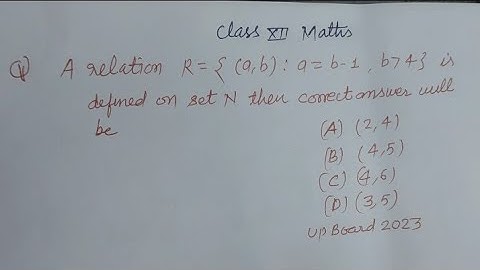 Class XII Maths
Q A relation R = { (a,b) : a = b-1 , b>4 } is
defined on set N then correct answer will
be
(A) (2,4)
(B) (4,5)
(C) (4,6)
(D) (3,5)
UP Board 2023